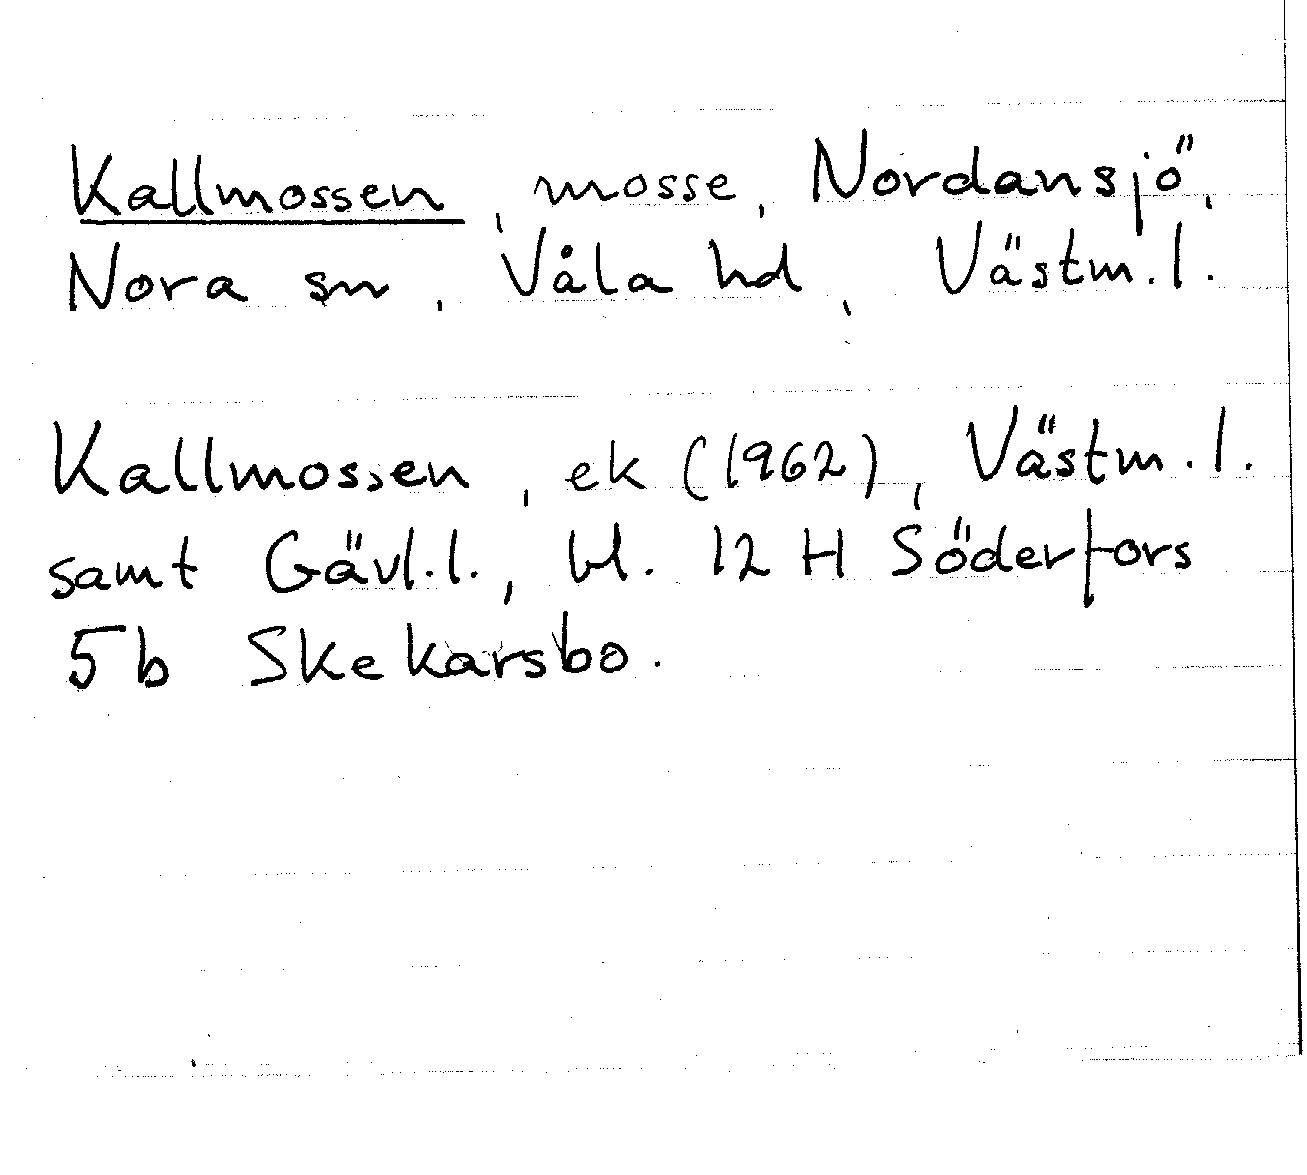 Kallmossen, mosse, Nordansjö,
Nora sn, Våla hd, Västm.l.
Kallmossen, ek (1962), Västm.l.
samt Gävl.l., bl. 12 H Söderfors
5b Skekarsbo.